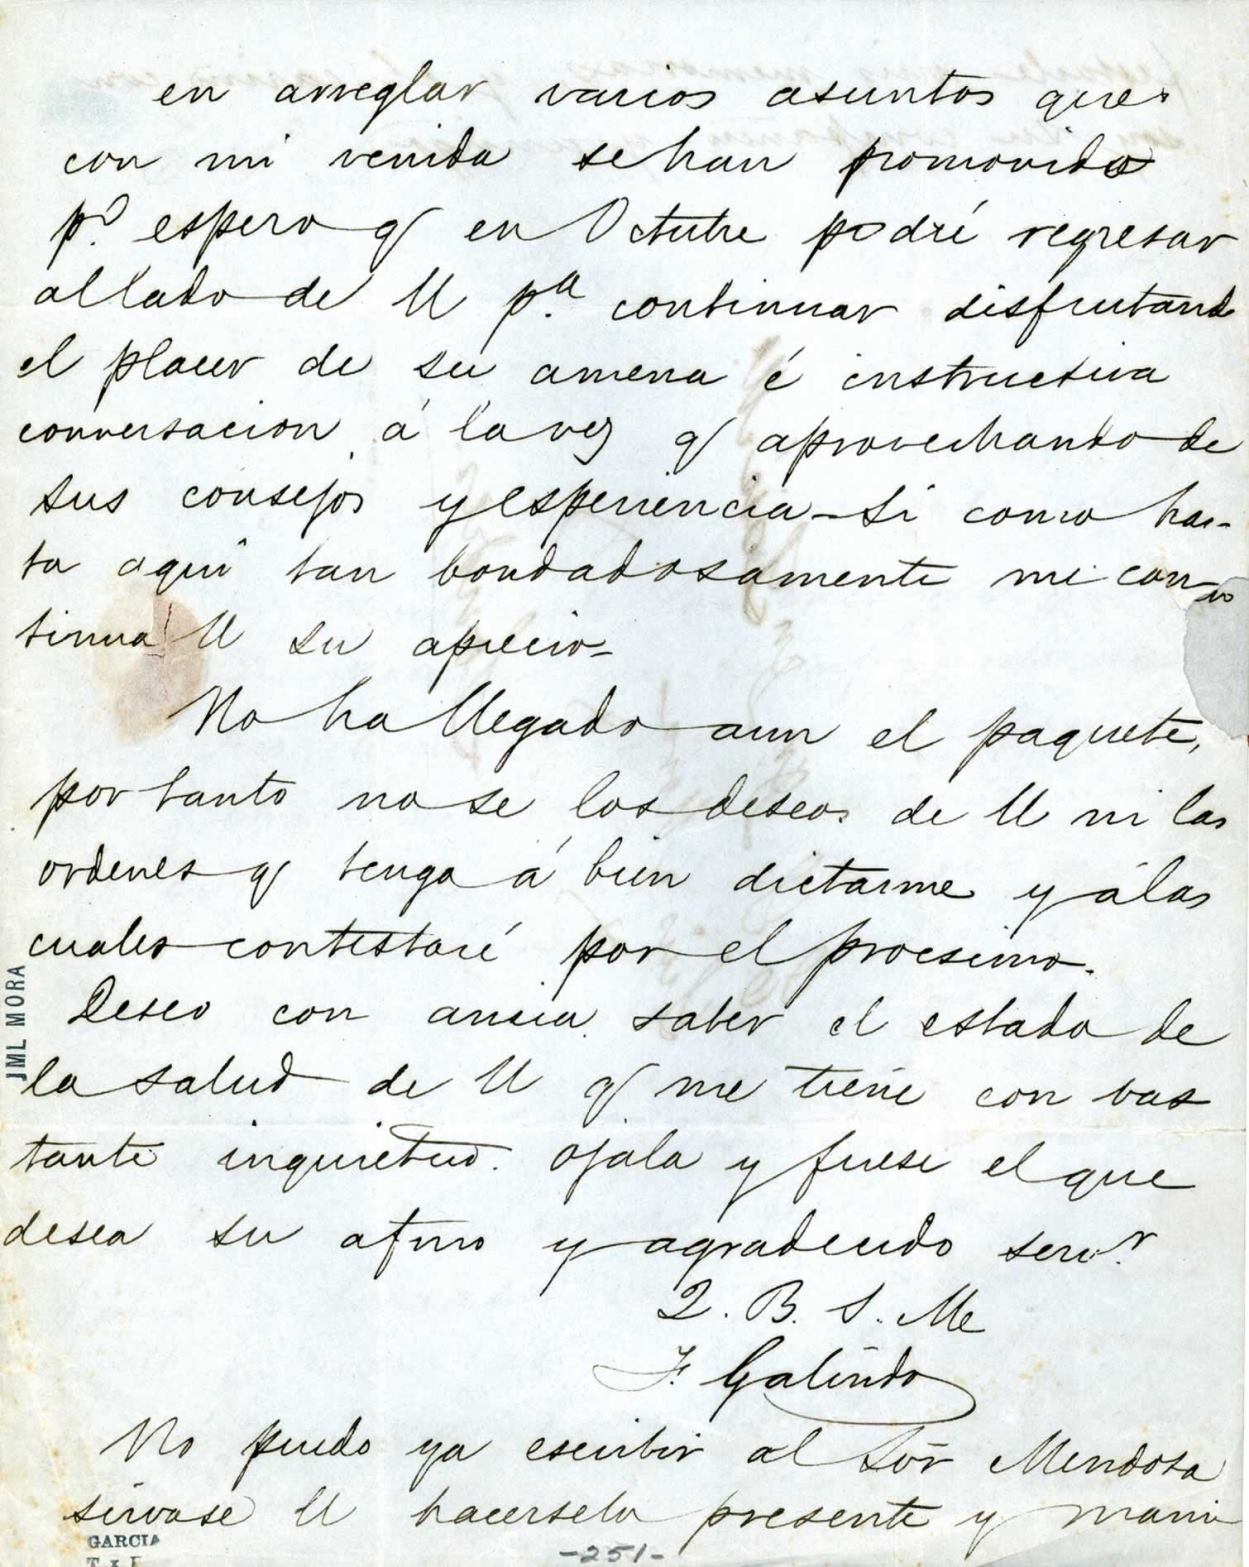 en arreglar varios asuntos que
con mi venida se han promovido
p.º espero q en Octubre podré regresar
al lado de U p.ª continuar disfrutand
el placer de su amena é instructiva
conversacion á la vez q aprovechando de
sus consejos y esperiencia - Si como has-
ta aqui tan bondadosamente mi con-
tinua U su aprecio -
No ha llegado aun el paquete,
por tanto no se los deseos de U ni las
ordenes q tenga á bien dictarme y á las
cuales contestaré por el procsimo.
Deseo con ansia saber el estado de
la salud de U q me tiene con bas
tante inquietud. ojala y fuese el que
desea su afmo y agradecido serv.r
Q. B. S. M
F. Galindo
No puedo ya escribir al Sõr Mendosa
sirvase U hacerselo presente y mani
JML MORA
GARCIA
-251-